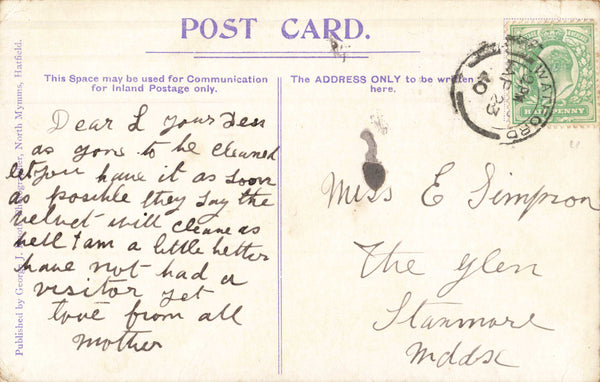 POST CARD.
This Space may be used for Communication
for Inland Postage only.
The ADDRESS ONLY to be written
here.
Dear L your Dess
as gone to be cleaned
let you have it as soon
as posible they say the
velvet will cleane as
well I am a little better
have not had a
visitor yet
love from all
Mother
Miss E Simpson
The Glen
Stanmore
Mddsx
WATFORD
PM
AP 23
10
HALFPENNY
Published by George J. Photographer, North Mymms, Hatfield.